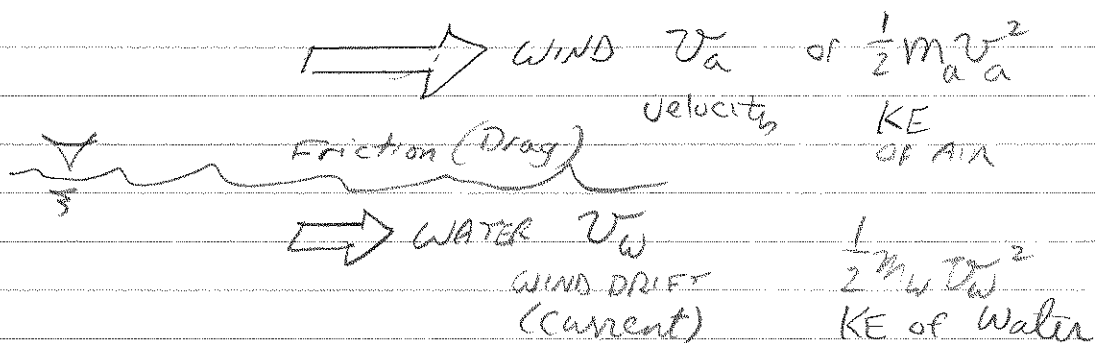 WIND v_a or ½ m_a v_a²
velocity KE
OF AIR
Friction (Drag)
WATER v_w ½ m_w v_w²
WIND DRIFT
(current) KE of Water